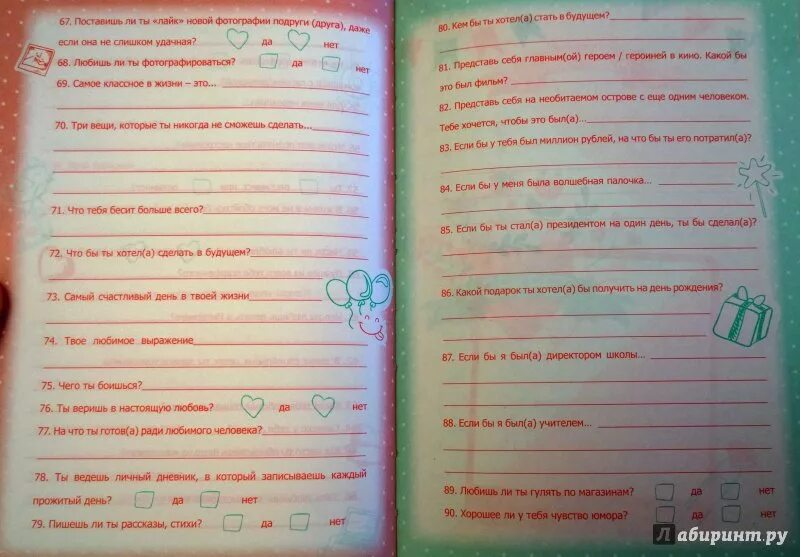 67. Поставишь ли ты «лайк» новой фотографии подруги (друга), даже
если она не слишком удачная? да нет
68. Любишь ли ты фотографироваться? да нет
69. Самое классное в жизни – это...
70. Три вещи, которые ты никогда не сможешь сделать...
71. Что тебя бесит больше всего?
72. Что бы ты хотел(а) сделать в будущем?
73. Самый счастливый день в твоей жизни
74. Твое любимое выражение
75. Чего ты боишься?
76. Ты веришь в настоящую любовь? да нет
77. На что ты готов(а) ради любимого человека?
78. Ты ведешь личный дневник, в который записываешь каждый
прожитый день? да нет
79. Пишешь ли ты рассказы, стихи? да нет
80. Кем бы ты хотел(а) стать в будущем?
81. Представь себя главным(ой) героем / героиней в кино. Какой бы
это был фильм?
82. Представь себя на необитаемом острове с еще одним человеком.
Тебе хочется, чтобы это был(а)...
83. Если бы у тебя был миллион рублей, на что бы ты его потратил(а)?
84. Если бы у меня была волшебная палочка...
85. Если бы ты стал(а) президентом на один день, ты бы сделал(а)?
86. Какой подарок ты хотел(а) бы получить на день рождения?
87. Если бы я был(а) директором школы...
88. Если бы я был(а) учителем...
89. Любишь ли ты гулять по магазинам? да нет
90. Хорошее ли у тебя чувство юмора? да нет
Лабиринт.ру